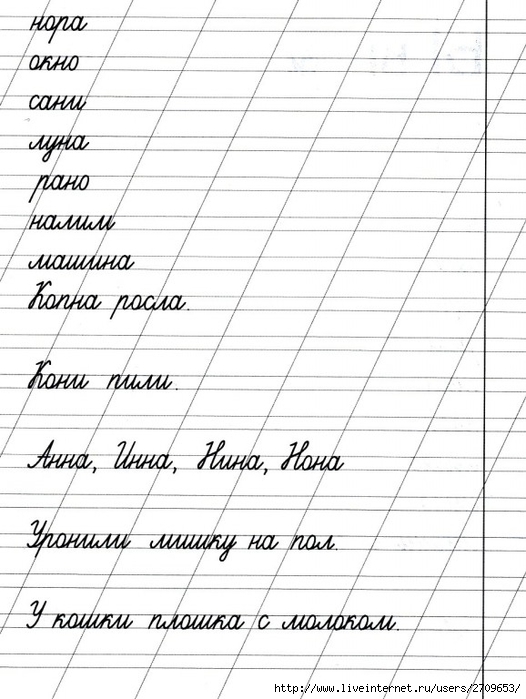 нора
окно
сани
луна
рано
налим
машина
Копна росла.
Кони пили.
Анна, Инна, Нина, Нона
Уронили мишку на пол.
У кошки плошка с молоком.
http://www.liveinternet.ru/users/2709653/